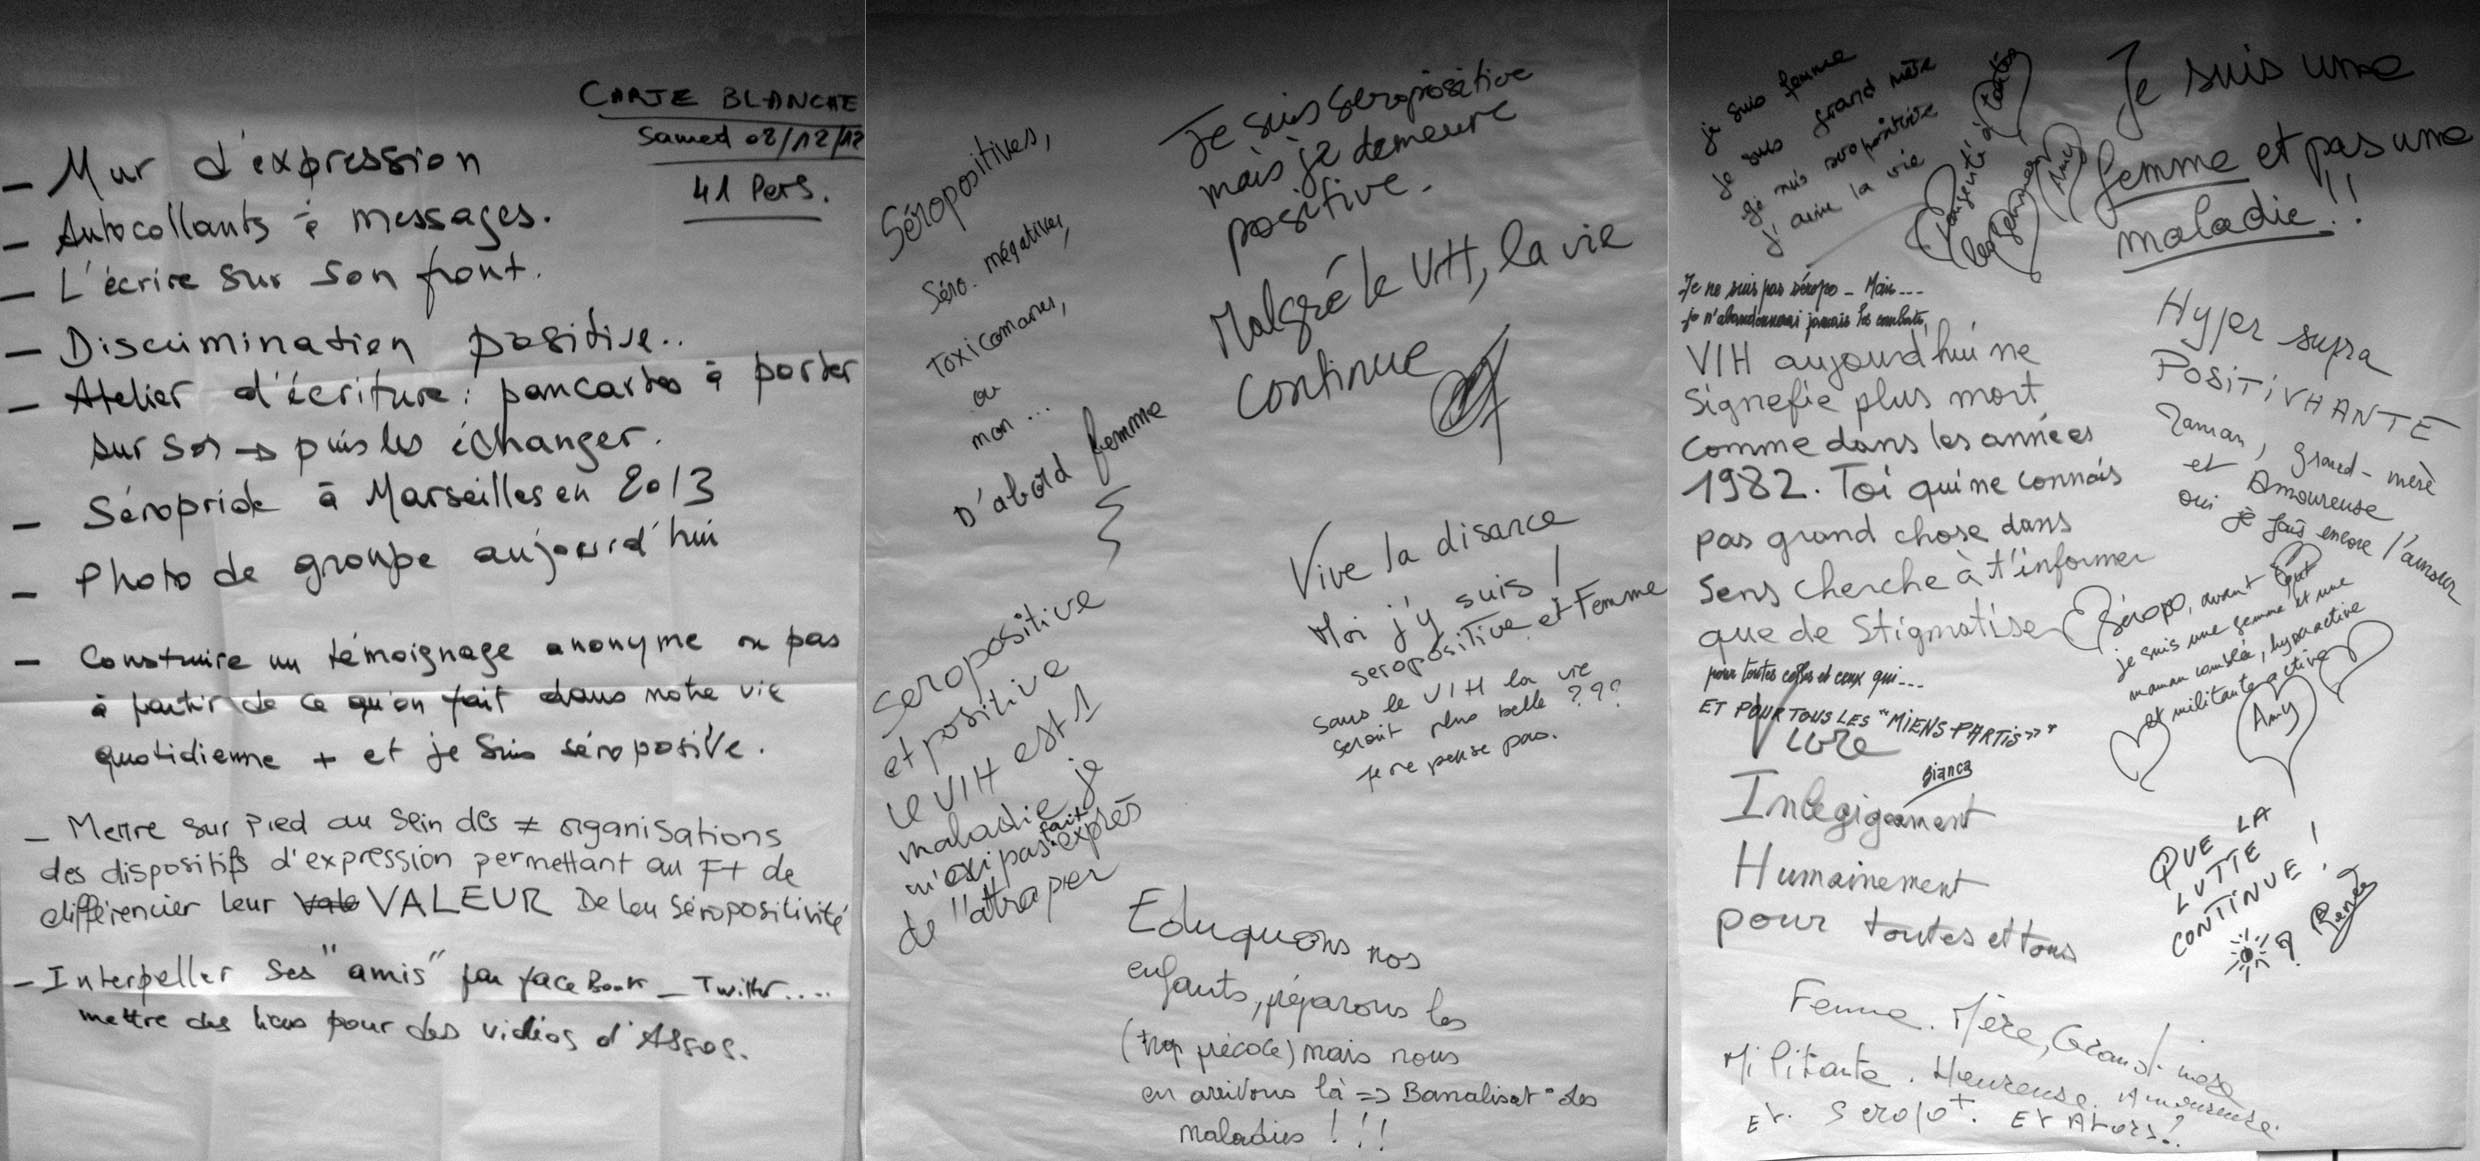 CARTE BLANCHE
Samed 08/12/12
41 Pers.
– Mur d'expression
– Autocollants à messages.
– L'écrire sur son front.
– Discrimination positive..
– Atelier d'écriture : pancartes à porter
sur soi → puis les échanger.
– Séropride à Marseilles en 2013
– Photo de groupe aujourd'hui
– Construire un témoignage anonyme ou pas
à partir de ce qu'on fait dans notre vie
quotidienne + et je suis séropositive.
– Mettre sur pied au sein des ≠ organisations
des dispositifs d'expression permettant au F+ de
différencier leur VALEUR De leu séropositivité
– Interpeller ses "amis" par faceBook – Twitter....
mettre des liens pour des vidéos d'Assos.
Séropositives,
Séro. négatives,
Toxicomanes,
ou
non ...
D'abord femme
Je suis seropositive
mais je demeure
positive.
Malgré le VIH, la vie
continue
Vive la disance
Moi j'y suis !
seropositive et Femme
sans le VIH la vie
serait plus belle ???
Je ne pense pas.
seropositive
et positive
le VIH est 1
maladie je
n'ai pas fait exprès
de l'attraper
Eduquons nos
enfants, préparons les
(trop précoce) mais nous
en arrivons là => Banalisat° des
maladies !!!
je suis femme
je suis grand mère
je suis seropositive
j'aime la vie
Amy
Je suis une
femme et pas une
maladie !!
Je ne suis pas séropo – Mais ....
je n'abandonnerai jamais les combats,
VIH aujourd'hui ne
signefie plus mort
comme dans les années
1982. Toi qui ne connais
pas grand chose dans
sens cherche à t'informer
que de stigmatiser
pour toutes celles et ceux qui ....
ET POUR TOUS LES "MIENS PARTIS"
Hyper supra
POSITIVHANTE
Maman, grand-mère
et Amoureuse
oui je fais encore l'amour
Séropo, avant tout
je suis une femme et une
maman comblée, hyperactive
et militante active
Amy
Vivre
Bianca
Humainement
pour toutes et tous
QUE LA
LUTTE
CONTINUE !
Femme. Mère, Grand-mère
Militante. Heureuse. Amoureuse.
Et Séropo+. Et Alors ?